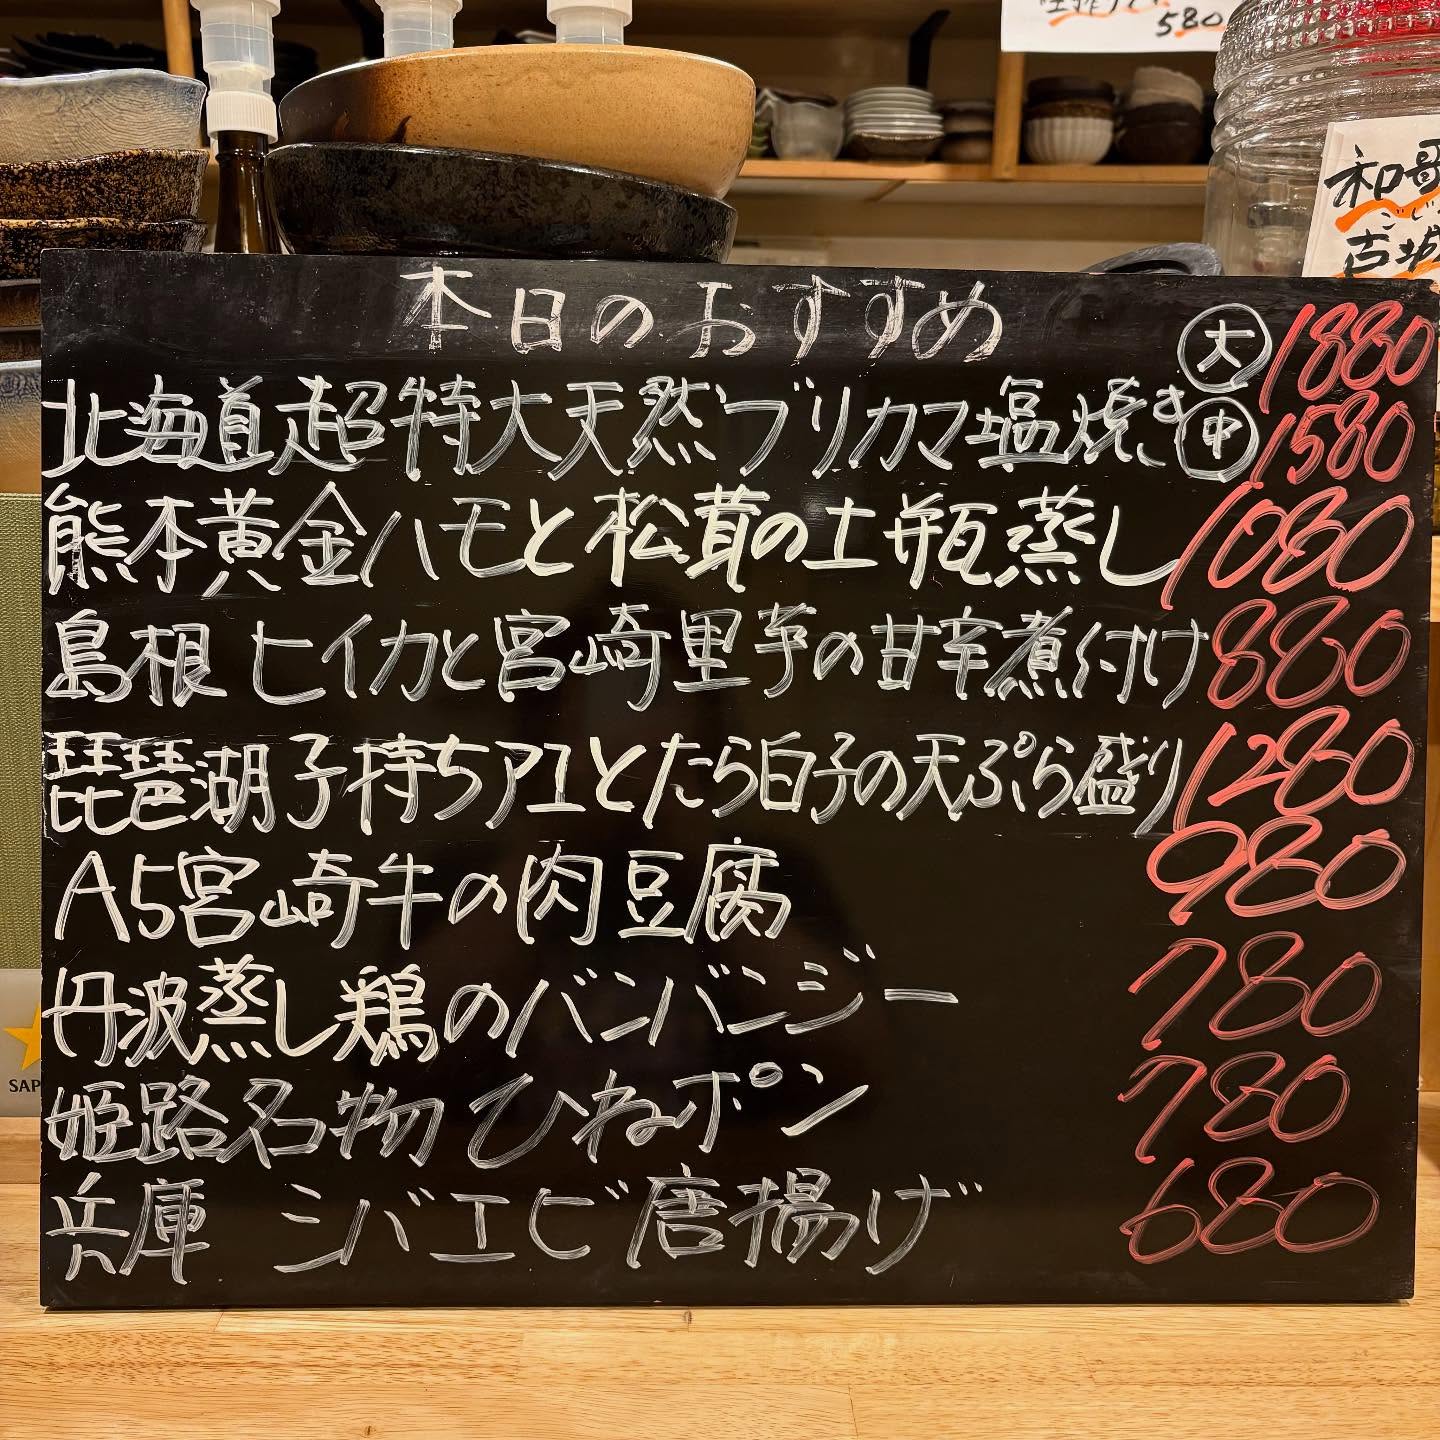 580
和歌
ごじ
古城
本日のおすすめ
北海道超特大天然ブリカマ塩焼き 大 1880
中 1580
熊本黄金ハモと松茸の土瓶蒸し 1080
島根 ヒイカと宮崎里芋の甘辛煮付け 880
琵琶湖子持ちアユとたら白子の天ぷら盛り 1280
A5宮崎牛の肉豆腐 980
丹波蒸し鶏のバンバンジー 780
姫路名物 ひねポン 780
兵庫 シバエビ唐揚げ 680
SAP